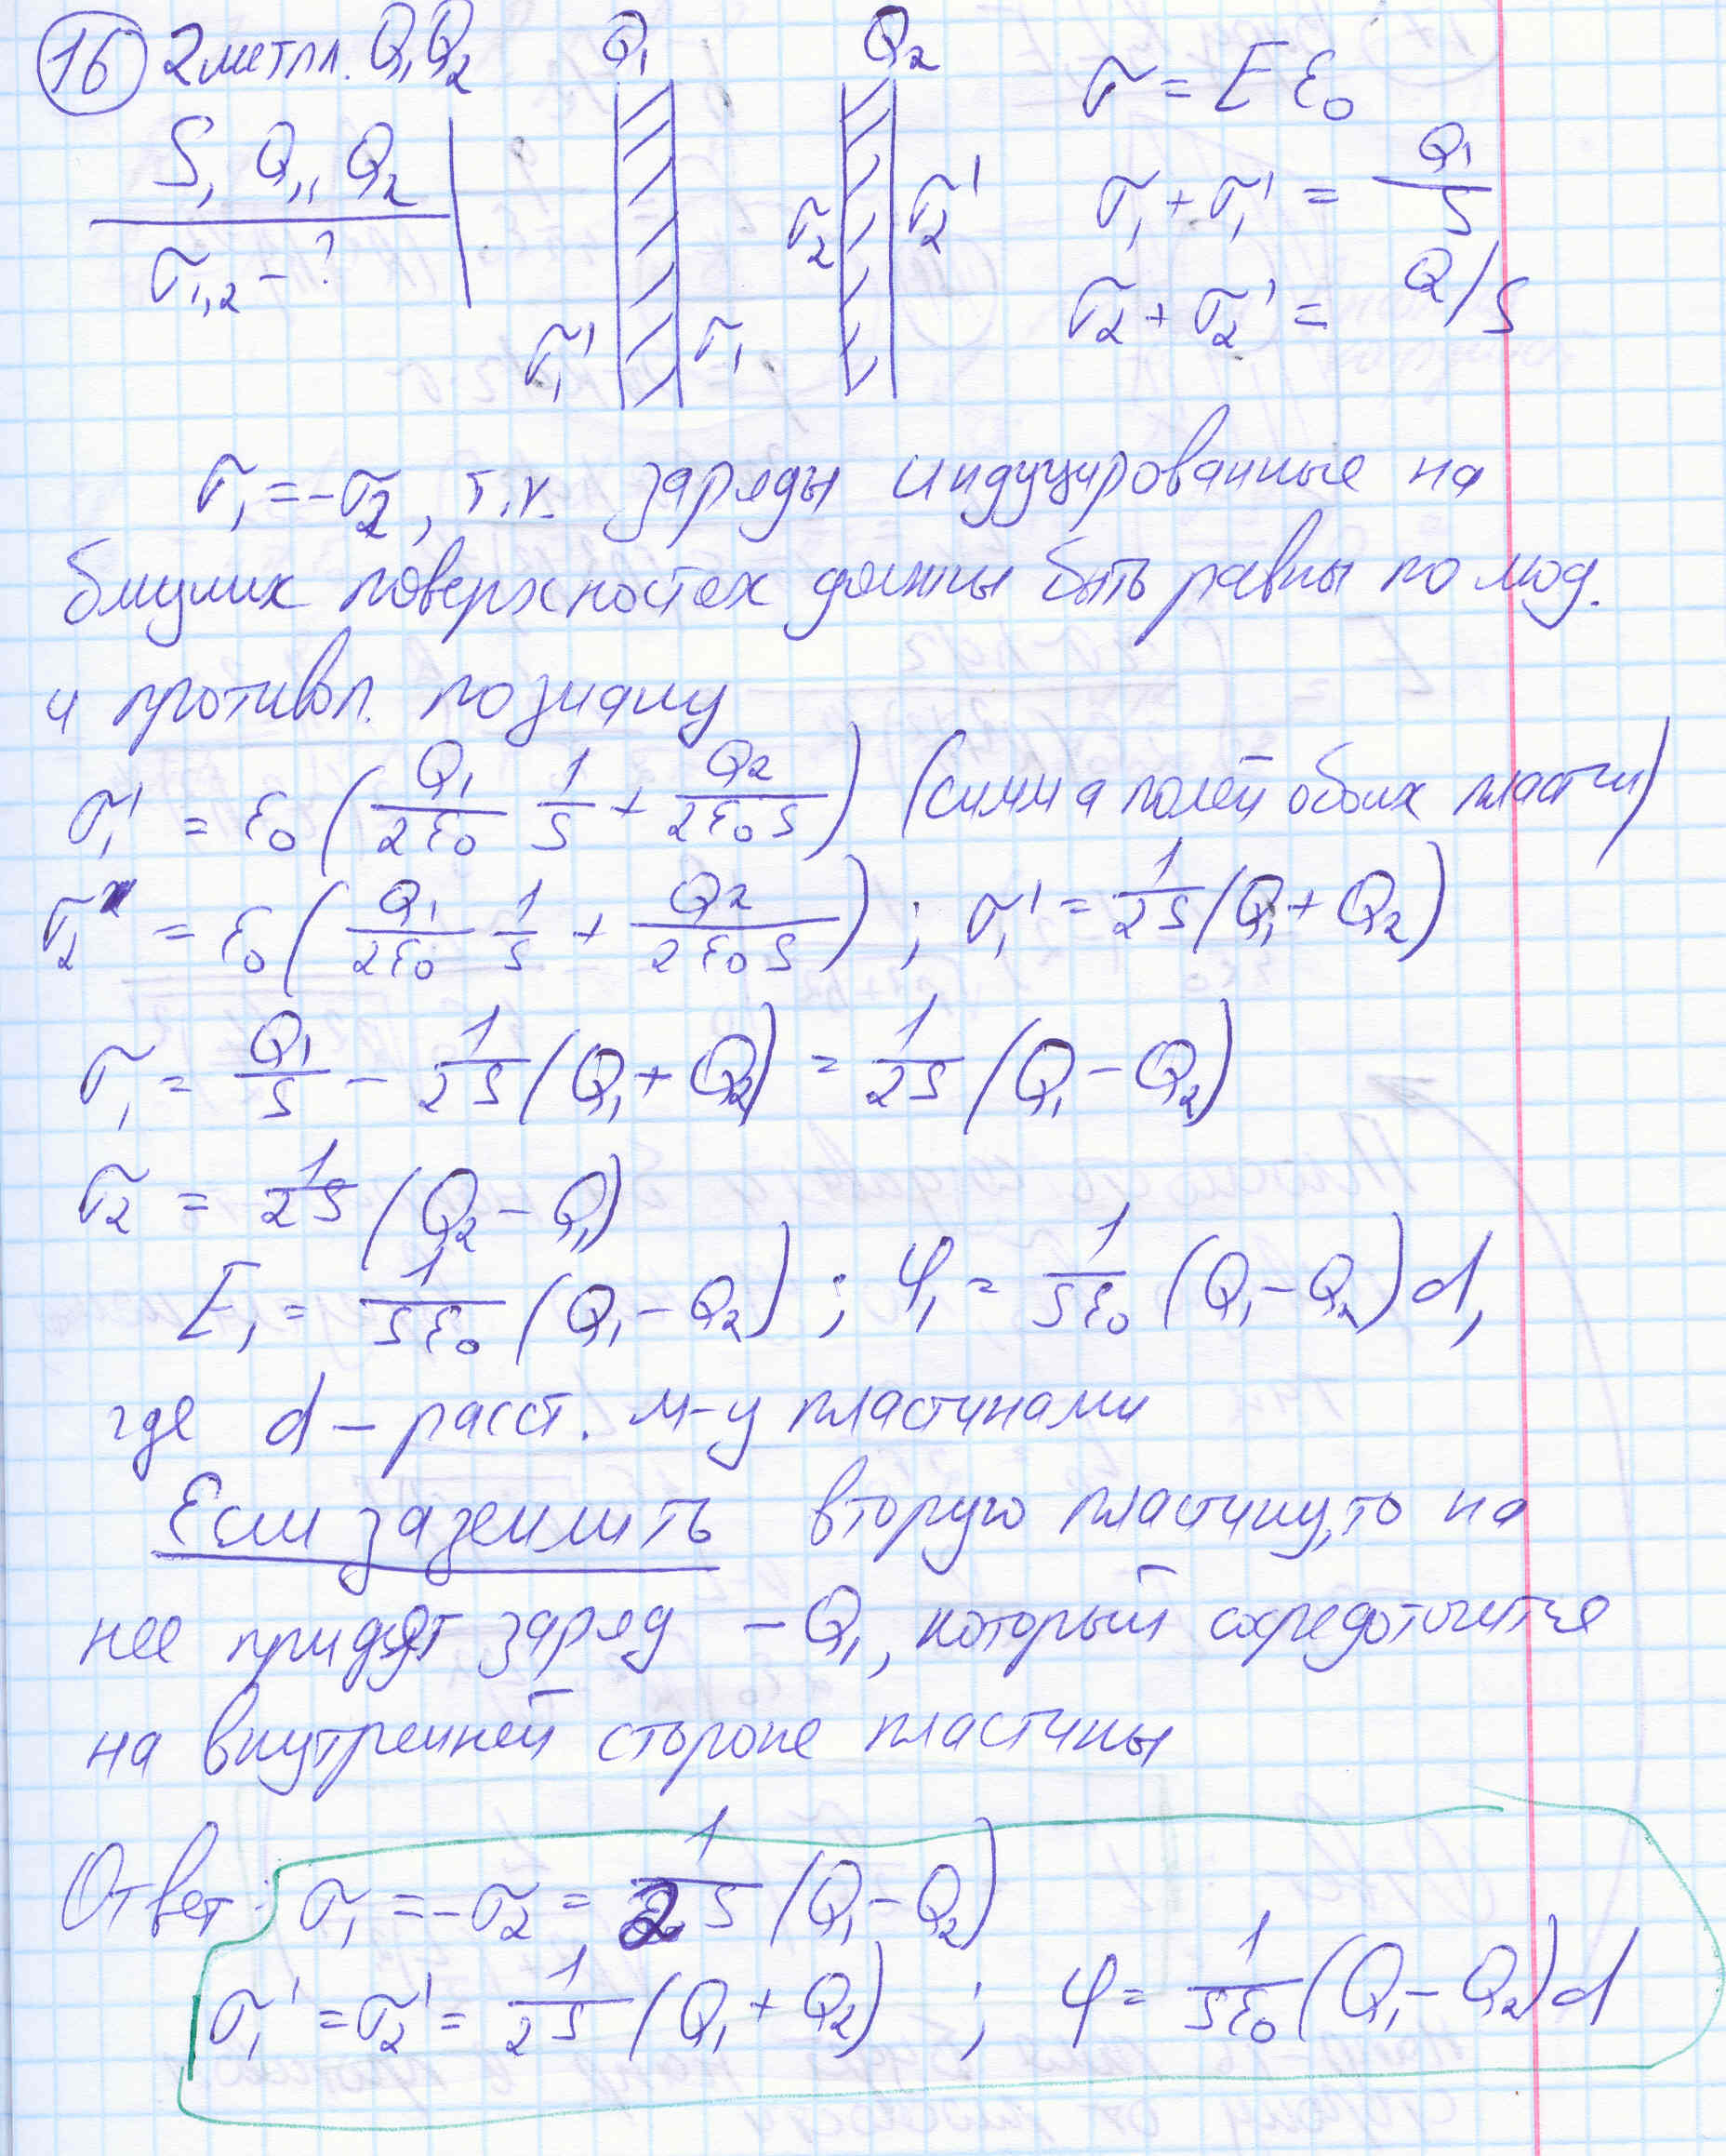 16 2 метпл. Q₁Q₂ Q₁ Q₂ σ = E ε₀
S, Q₁, Q₂ σ₁ + σ₁' = Q₁/S
σ₁,₂ - ? σ₂ σ₂' σ₂ + σ₂' = Q/S
σ₁' σ₁
σ₁ = -σ₂, т.к. заряды индуцированные на
ближних поверхностях должны быть равны по мод.
и противоп. по знаку
σ₁' = ε₀ (Q₁/2ε₀ 1/S + Q₂/2ε₀S) (сумма полей обоих пластин)
σ₂ = ε₀ (Q₁/2ε₀ 1/S + Q₂/2ε₀S) ; σ₁' = 1/2S (Q₁ + Q₂)
σ₁ = Q₁/S - 1/2S (Q₁ + Q₂) = 1/2S (Q₁ - Q₂)
σ₂ = 1/2S (Q₂ - Q₁)
E₁ = 1/Sε₀ (Q₁ - Q₂) ; φ₁ = 1/Sε₀ (Q₁ - Q₂) d,
где d - расст. м-у пластинами
Если заземлить вторую пластину, то на
нее придет заряд - Q₁, который сосредоточится
на внутренней стороне пластины
Ответ: σ₁ = -σ₂ = 1/2S (Q₁ - Q₂)
σ₁' = σ₂' = 1/2S (Q₁ + Q₂) ; φ = 1/Sε₀ (Q₁ - Q₂) d